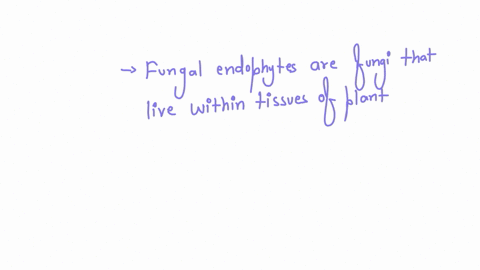 → Fungal endophytes are fungi that
live within tissues of plant